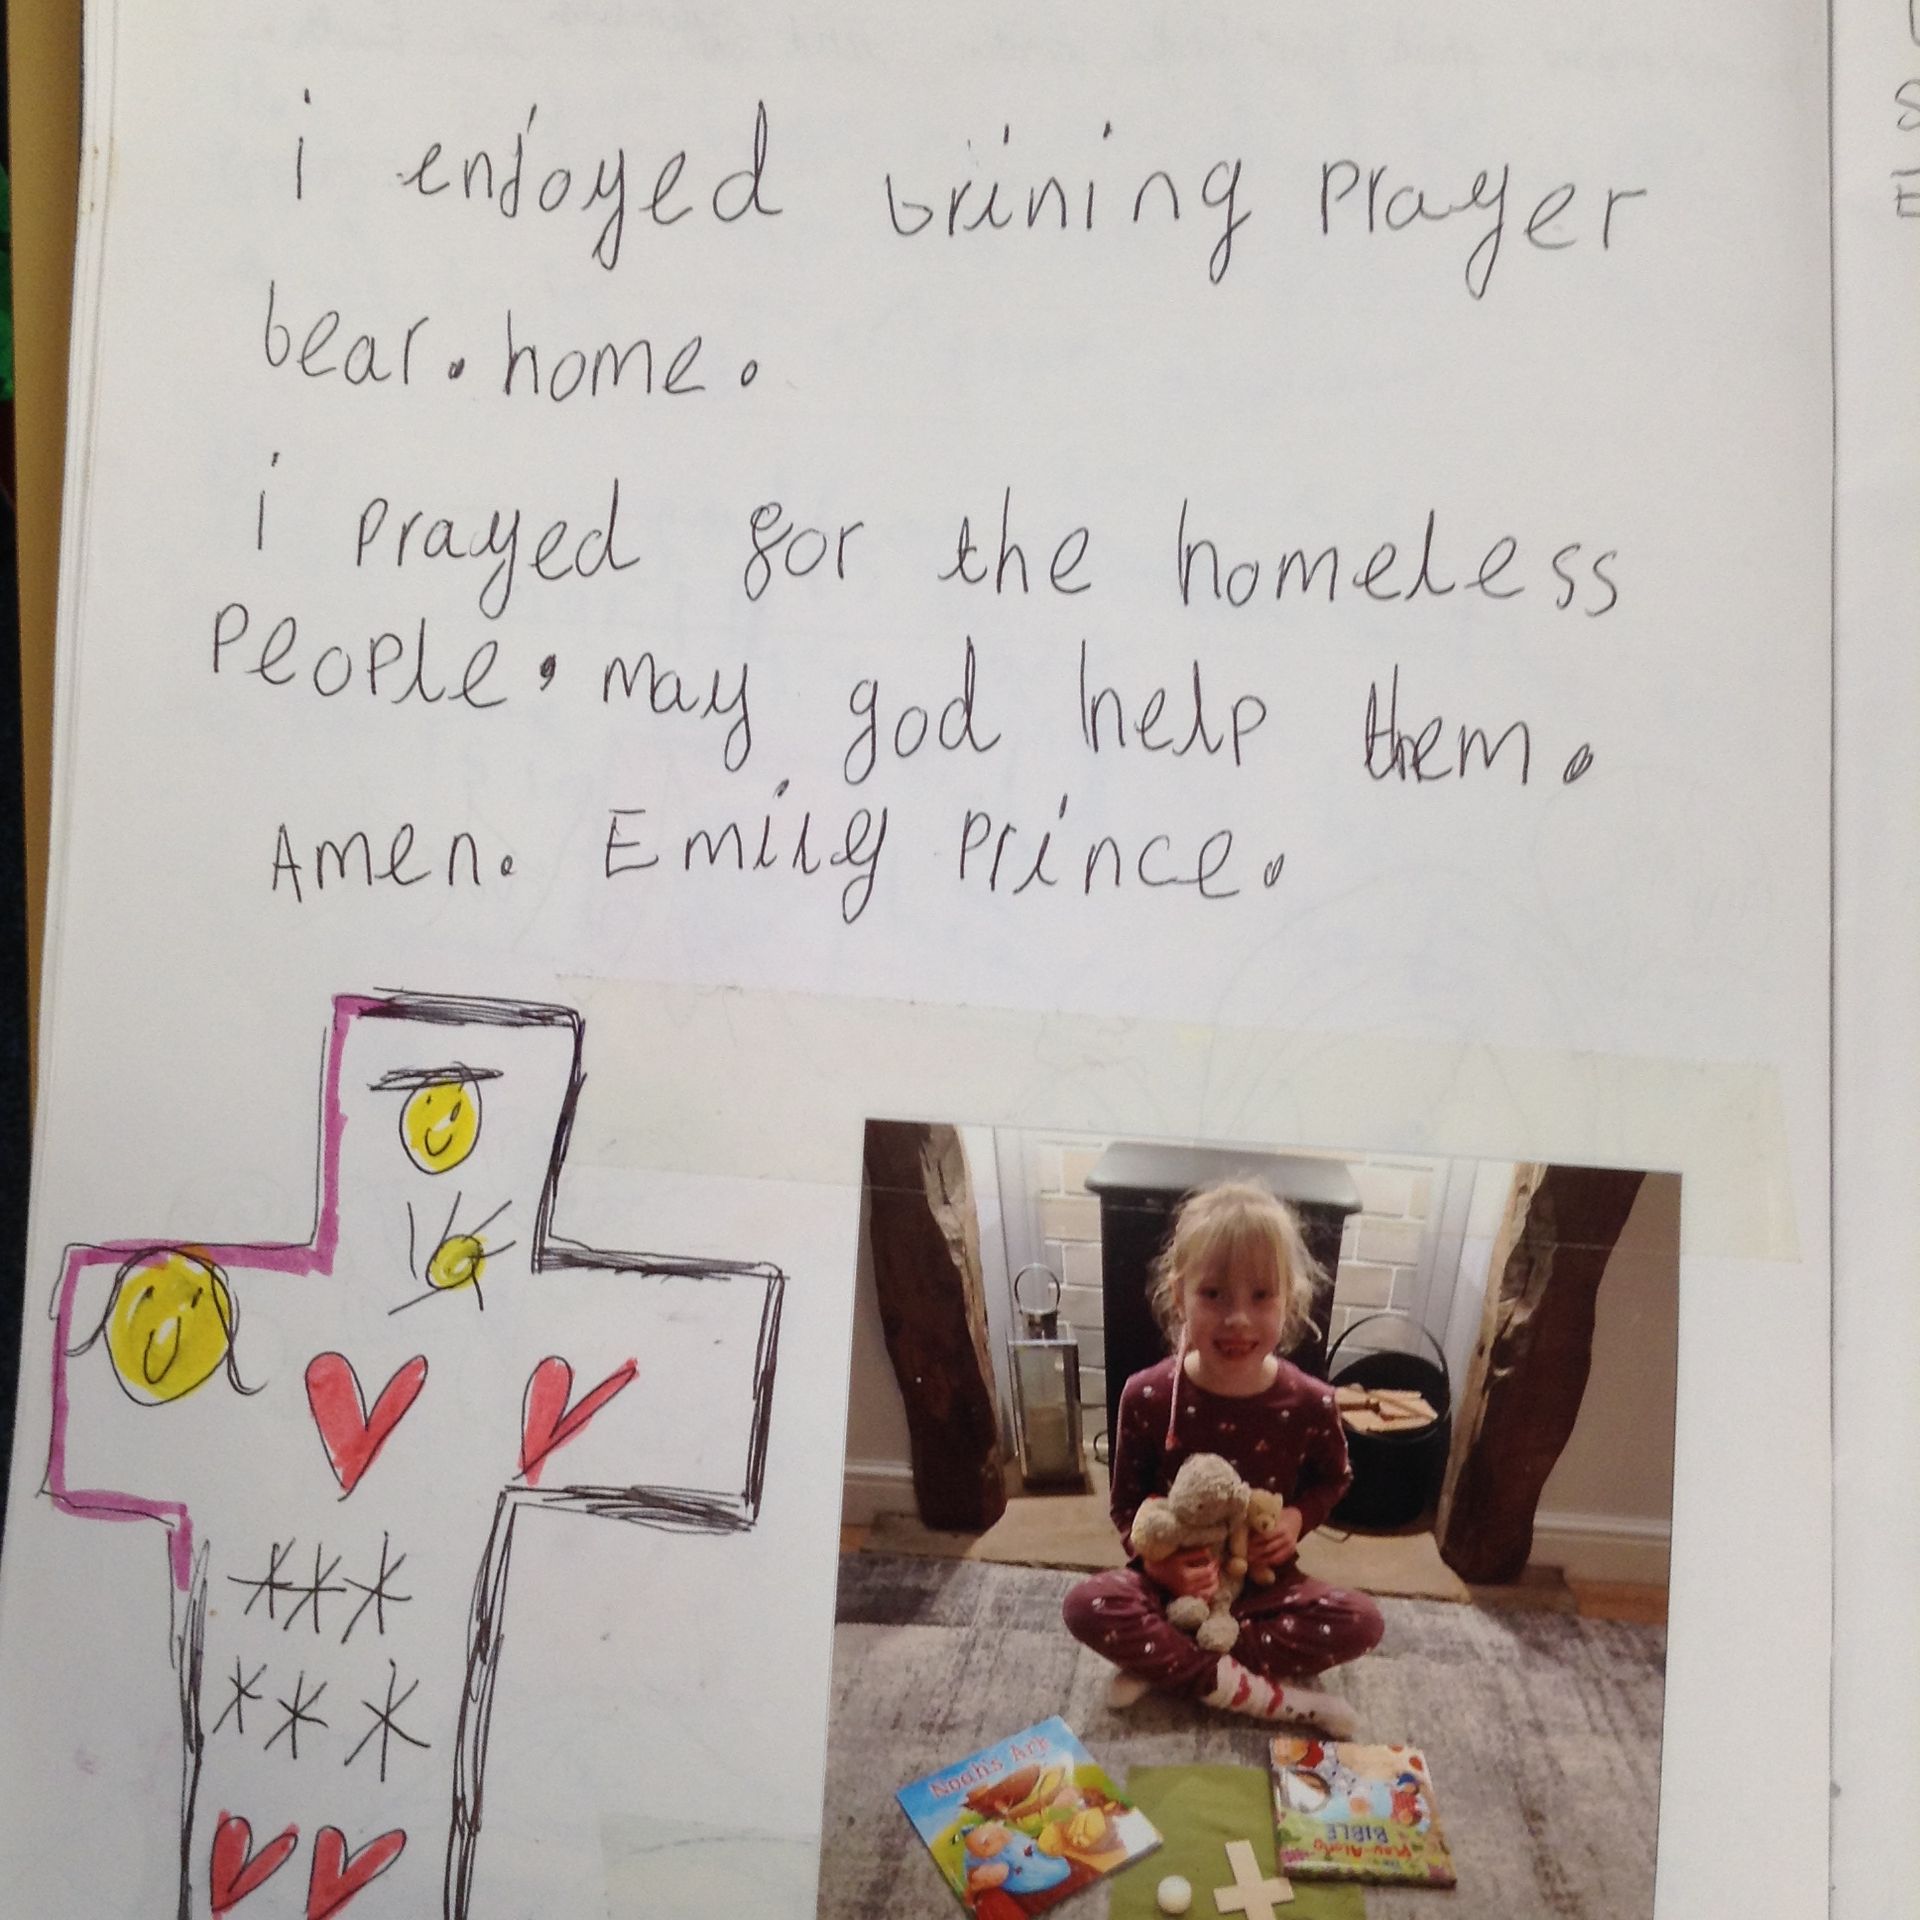 i enjoyed brining prayer
bear. home.
i prayed for the homeless
people. may god help them.
Amen. Emily Prince.
Noah's Ark
Play-Along
BIBLE